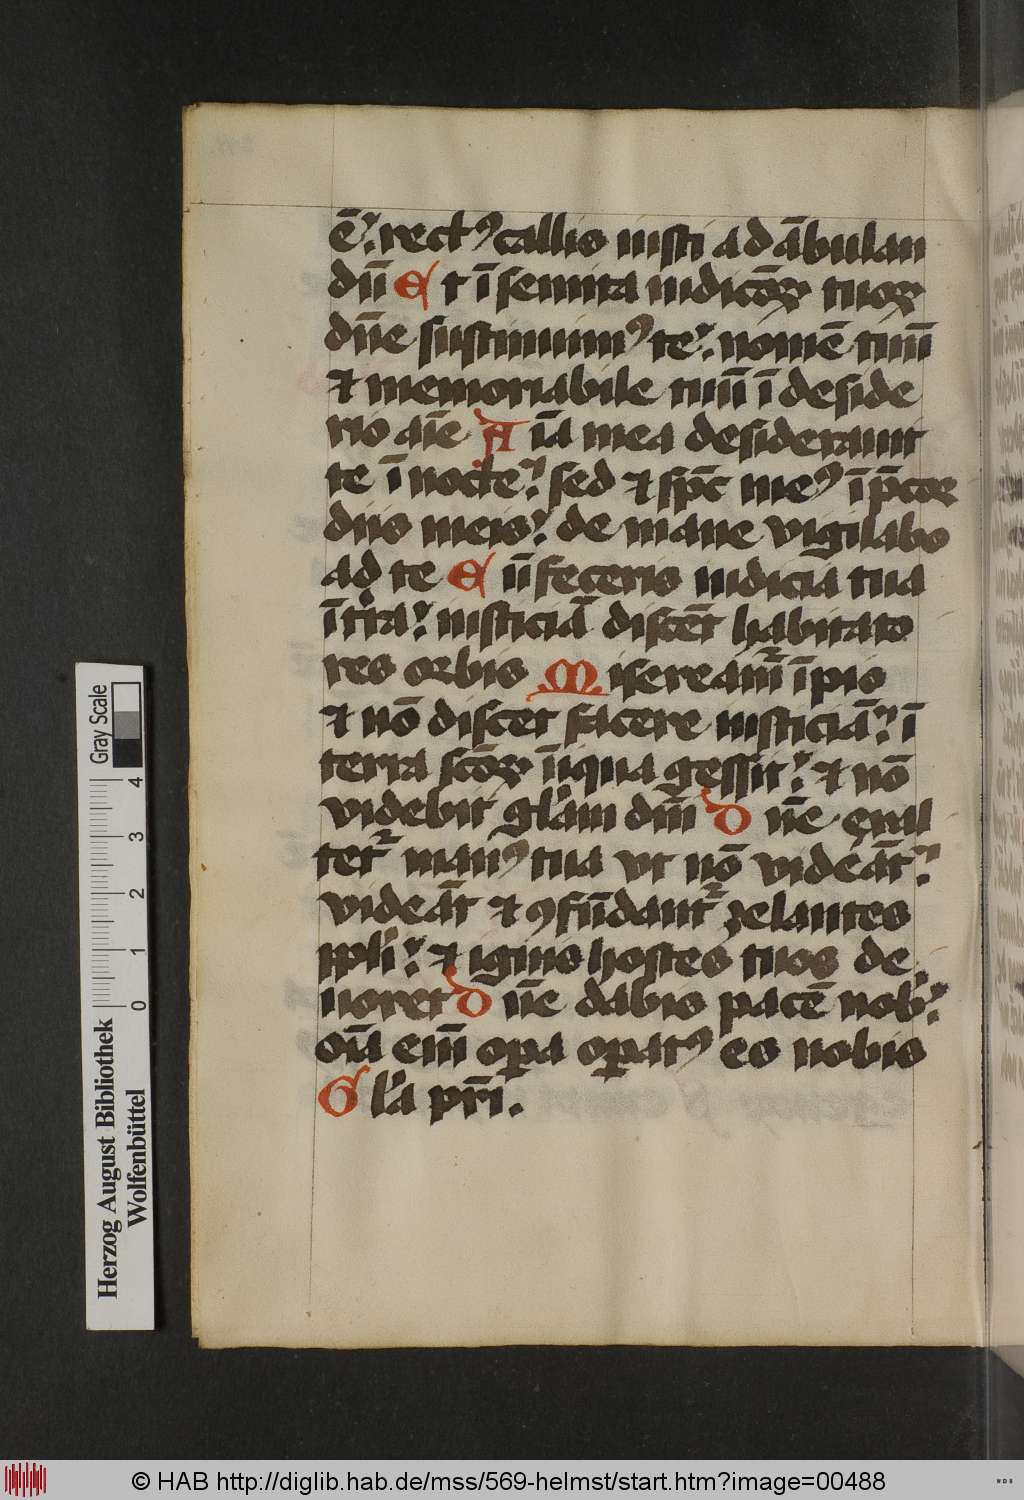 ē. rectꝰ callis iusti ad ābulan
dū Et ī semita iudicōꝝ tuoꝝ
dn̄e sustinuimꝰ te. nomē tuū
⁊ memoriabile tuū ī deside
rio aīe Aīa mea desiderauit
te ī nocte. sed ⁊ sp̄c meꝰ ī p̄cor
diis meis. de mane vigilabo
ad te Cū feceris iudicia tua
ī tr̄a. iusticiā discēt habitato
res orbis Misereamʳ īpio
⁊ nō discet facere iusticiā. ī
terra sc̄oꝝ īiqua gessit. ⁊ nō
videbit gl̄am dn̄i Dn̄e exal
tetʳ manꝰ tua vt nō videāt.
videāt ⁊ ꝯfūdantʳ zelantes
ppl̄i. ⁊ ignis hostes tuos de
uoret Dn̄e dabis pacē nob̄.
oīa em̄ oꝑa oꝑatꝰ es nobis
Gl̄a pr̄i.
Herzog August Bibliothek
Wolfenbüttel
0 1 2 3 4
Gray Scale
© HAB http://diglib.hab.de/mss/569-helmst/start.htm?image=00488